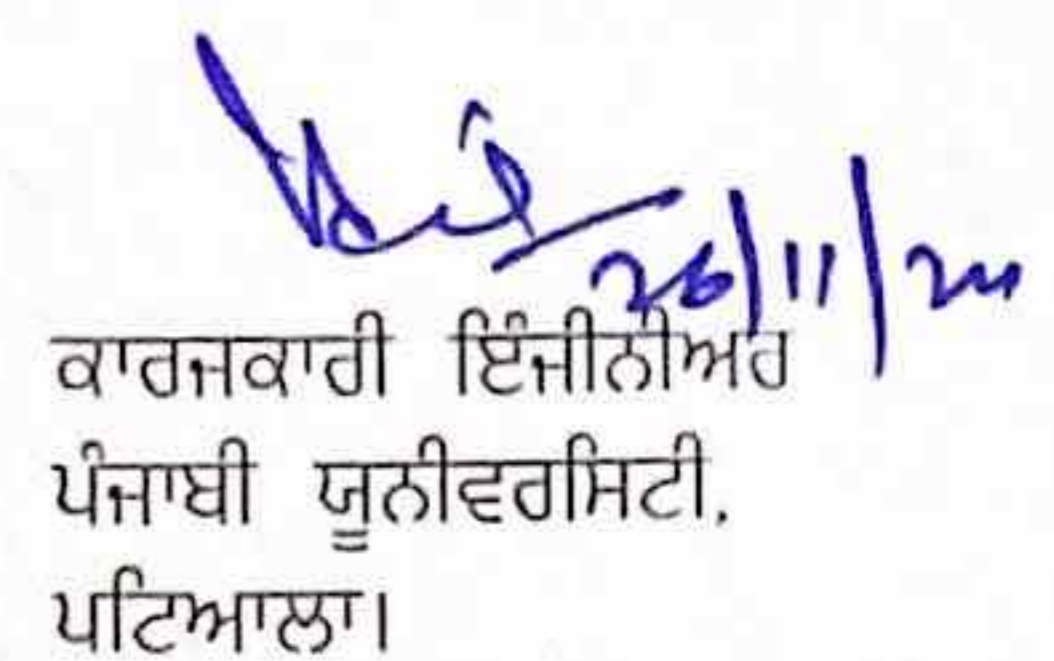 26/11/24
ਕਾਰਜਕਾਰੀ ਇੰਜੀਨੀਅਰ
ਪੰਜਾਬੀ ਯੂਨੀਵਰਸਿਟੀ,
ਪਟਿਆਲਾ।